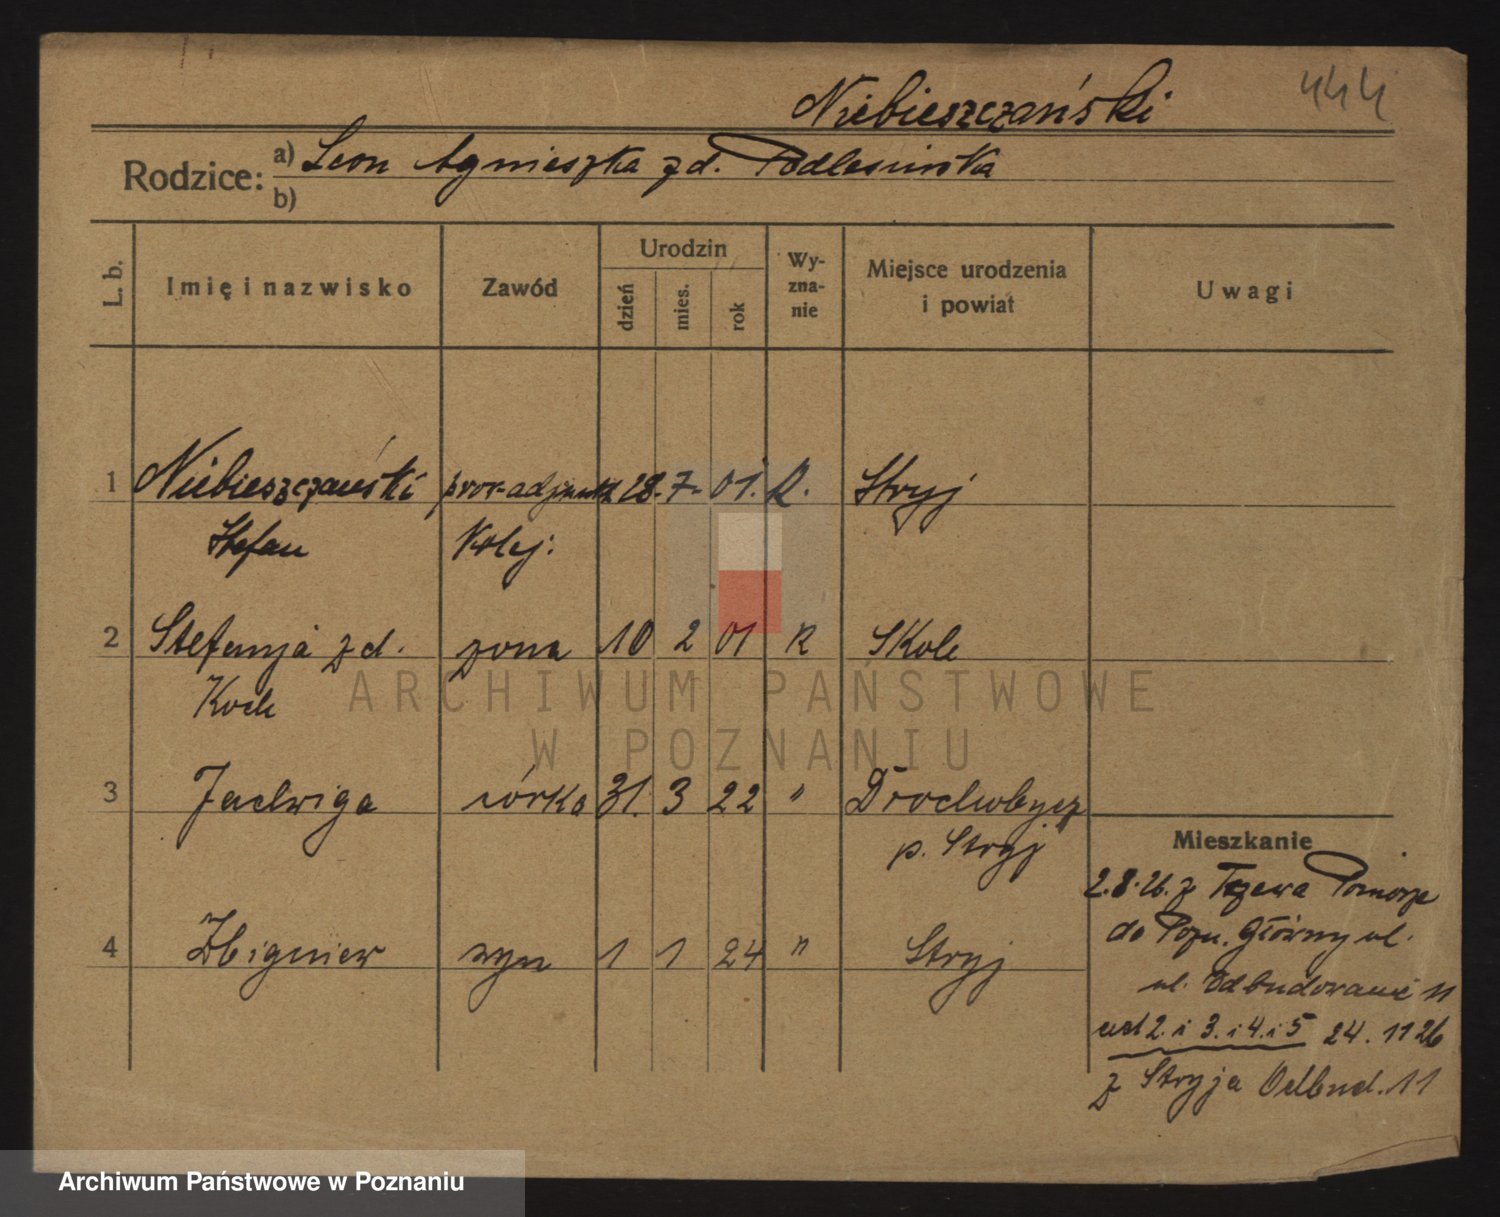 444
Niebieszczański
Rodzice: a) Leon Agnieszka z d. Podlesińska
b)
L. b. Imię i nazwisko Zawód Urodzin dzień mies. rok Wy-zna-nie Miejsce urodzenia i powiat Uwagi
1 Niebieszczański prow-adjunkt 28. 7. 01. R. Stryj
Stefan Kolej.
2 Stefanja z d. żona 10 2 01 R Skole
Koch
ARCHIWUM PAŃSTWOWE
W POZNANIU
3 Jadwiga córka 31. 3 22 " Drochobycz
p. Stryj
Mieszkanie
2.8.26. z Tczewa Pomorze
4 Zbigniew syn 1 1 24 " Stryj
do Pozn. Główny ul.
ul. Odbudowanie 11
ad 2. i 3. i 4. i 5 24. 11 26
z Stryja Odbud. 11
Archiwum Państwowe w Poznaniu